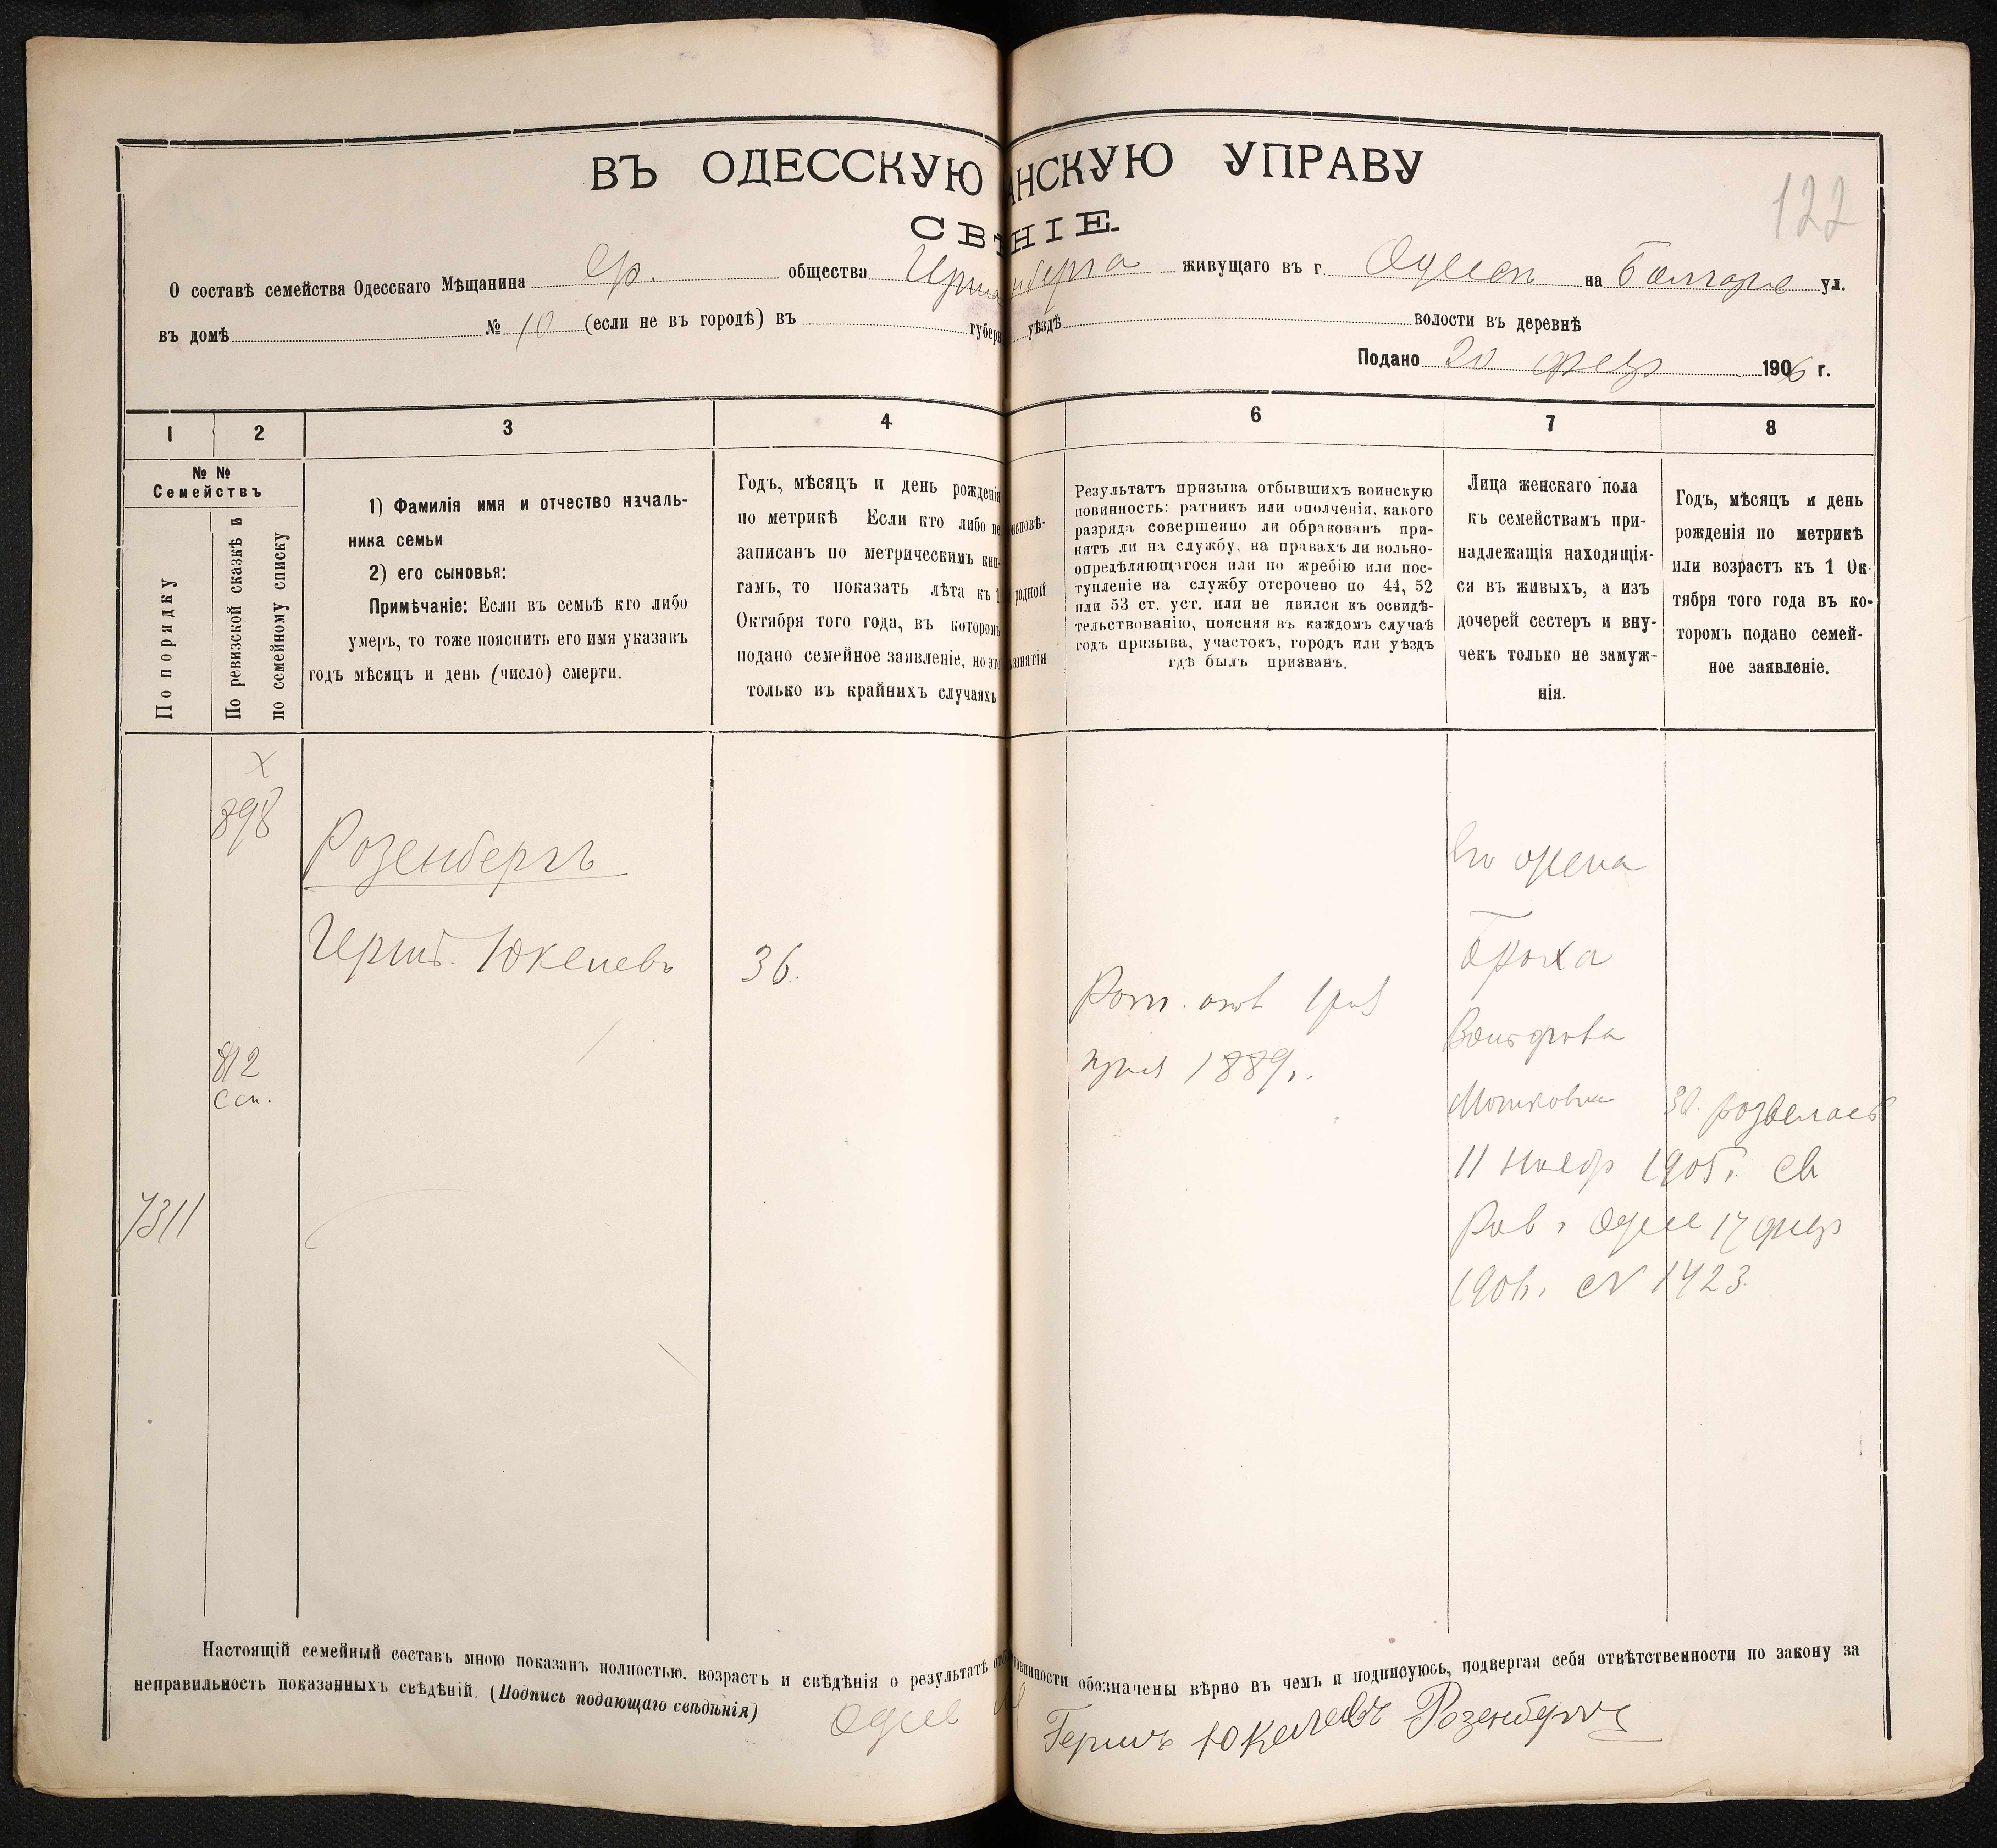 122
ВЪ ОДЕССКУЮ АНСКУЮ УПРАВУ
СВѢНІЕ.
О составѣ семейства Одесскаго Мѣщанина Ев. общества живущаго въ г. Одессѣ на ул.
въ домѣ № 10 (если не въ городѣ) въ губерн уѣздѣ волости въ деревнѣ
Подано 20 февр 1906 г.
1 2 3 4 6 7 8
№ №
Семействъ
По порядку
По ревизской сказкѣ и
по семейному списку
1) Фамилія имя и отчество началь-
ника семьи
2) его сыновья:
Примѣчаніе: Если въ семьѣ кто либо
умеръ, то тоже пояснить его имя указавъ
годъ мѣсяцъ и день (число) смерти.
Годъ, мѣсяцъ и день рожденія
по метрикѣ Если кто либо не
записанъ по метрическимъ кни-
гамъ, то показать лѣта къ 1
Октября того года, въ которомъ
подано семейное заявленіе, но это
только въ крайнихъ случаяхъ
исповѣ-
родной
занятія
Результатъ призыва отбывшихъ воинскую
повинность: ратникъ или ополченія, какого
разряда совершенно ли обракованъ при-
нятъ ли на службу, на правахъ ли вольно-
опредѣляющагося или по жребію или пос-
тупленіе на службу отсрочено по 44, 52
или 53 ст. уст. или не явился къ освидѣ-
тельствованію, поясняя въ каждомъ случаѣ
годъ призыва, участокъ, городъ или уѣздъ
гдѣ былъ призванъ.
Лица женскаго пола
къ семействамъ при-
надлежащія находящія-
ся въ живыхъ, а изъ
дочерей сестеръ и вну-
чекъ только не замуж-
нія.
Годъ, мѣсяцъ и день
рожденія по метрикѣ
или возрастъ къ 1 Ок-
тября того года въ ко-
торомъ подано семей-
ное заявленіе.
х
898
Розенбергъ
Герш. Юкелевъ
36.
812
сп.
7311
Рат. опол 1 раз
приз 1889 г.
Его жена
Броха
Мошковна 30. развелась
11 ноябр 1905 г. св
Рав. Одесс 17 февр
1906 г. № 1423.
Настоящій семейный составъ мною показанъ полностью, возрастъ и свѣдѣнія о результатѣ отб повинности обозначены вѣрно въ чемъ и подписуюсь, подвергая себя отвѣтственности по закону за
неправильность показанныхъ свѣдѣній. (Подпись подающаго свѣдѣнія)
Одес Гершъ Юкелевъ Розенбергъ